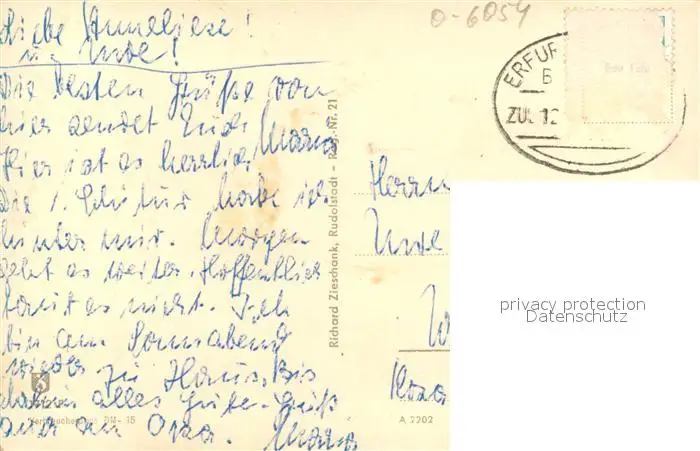 Liebe Anneliese!
u. Uwe!
Die besten Grüße von
hier sendet Euch Mama
Hier ist es herrlich.
Die 1. Skitur habe ich
hinter mir. Morgen
geht es weiter. Hoffentlich
taut es nicht. Ich
bin am Sonnabend
wieder zu Haus. Bis
dahin alles Gute. Gruß
auch an Opa. Mama
Richard Zieschank, Rudolstadt - Reg.-Nr. 21
DM- 15
A 2202
0-6054
ERFUR
ZUG 12
Herrn
Uwe
privacy protection
Datenschutz